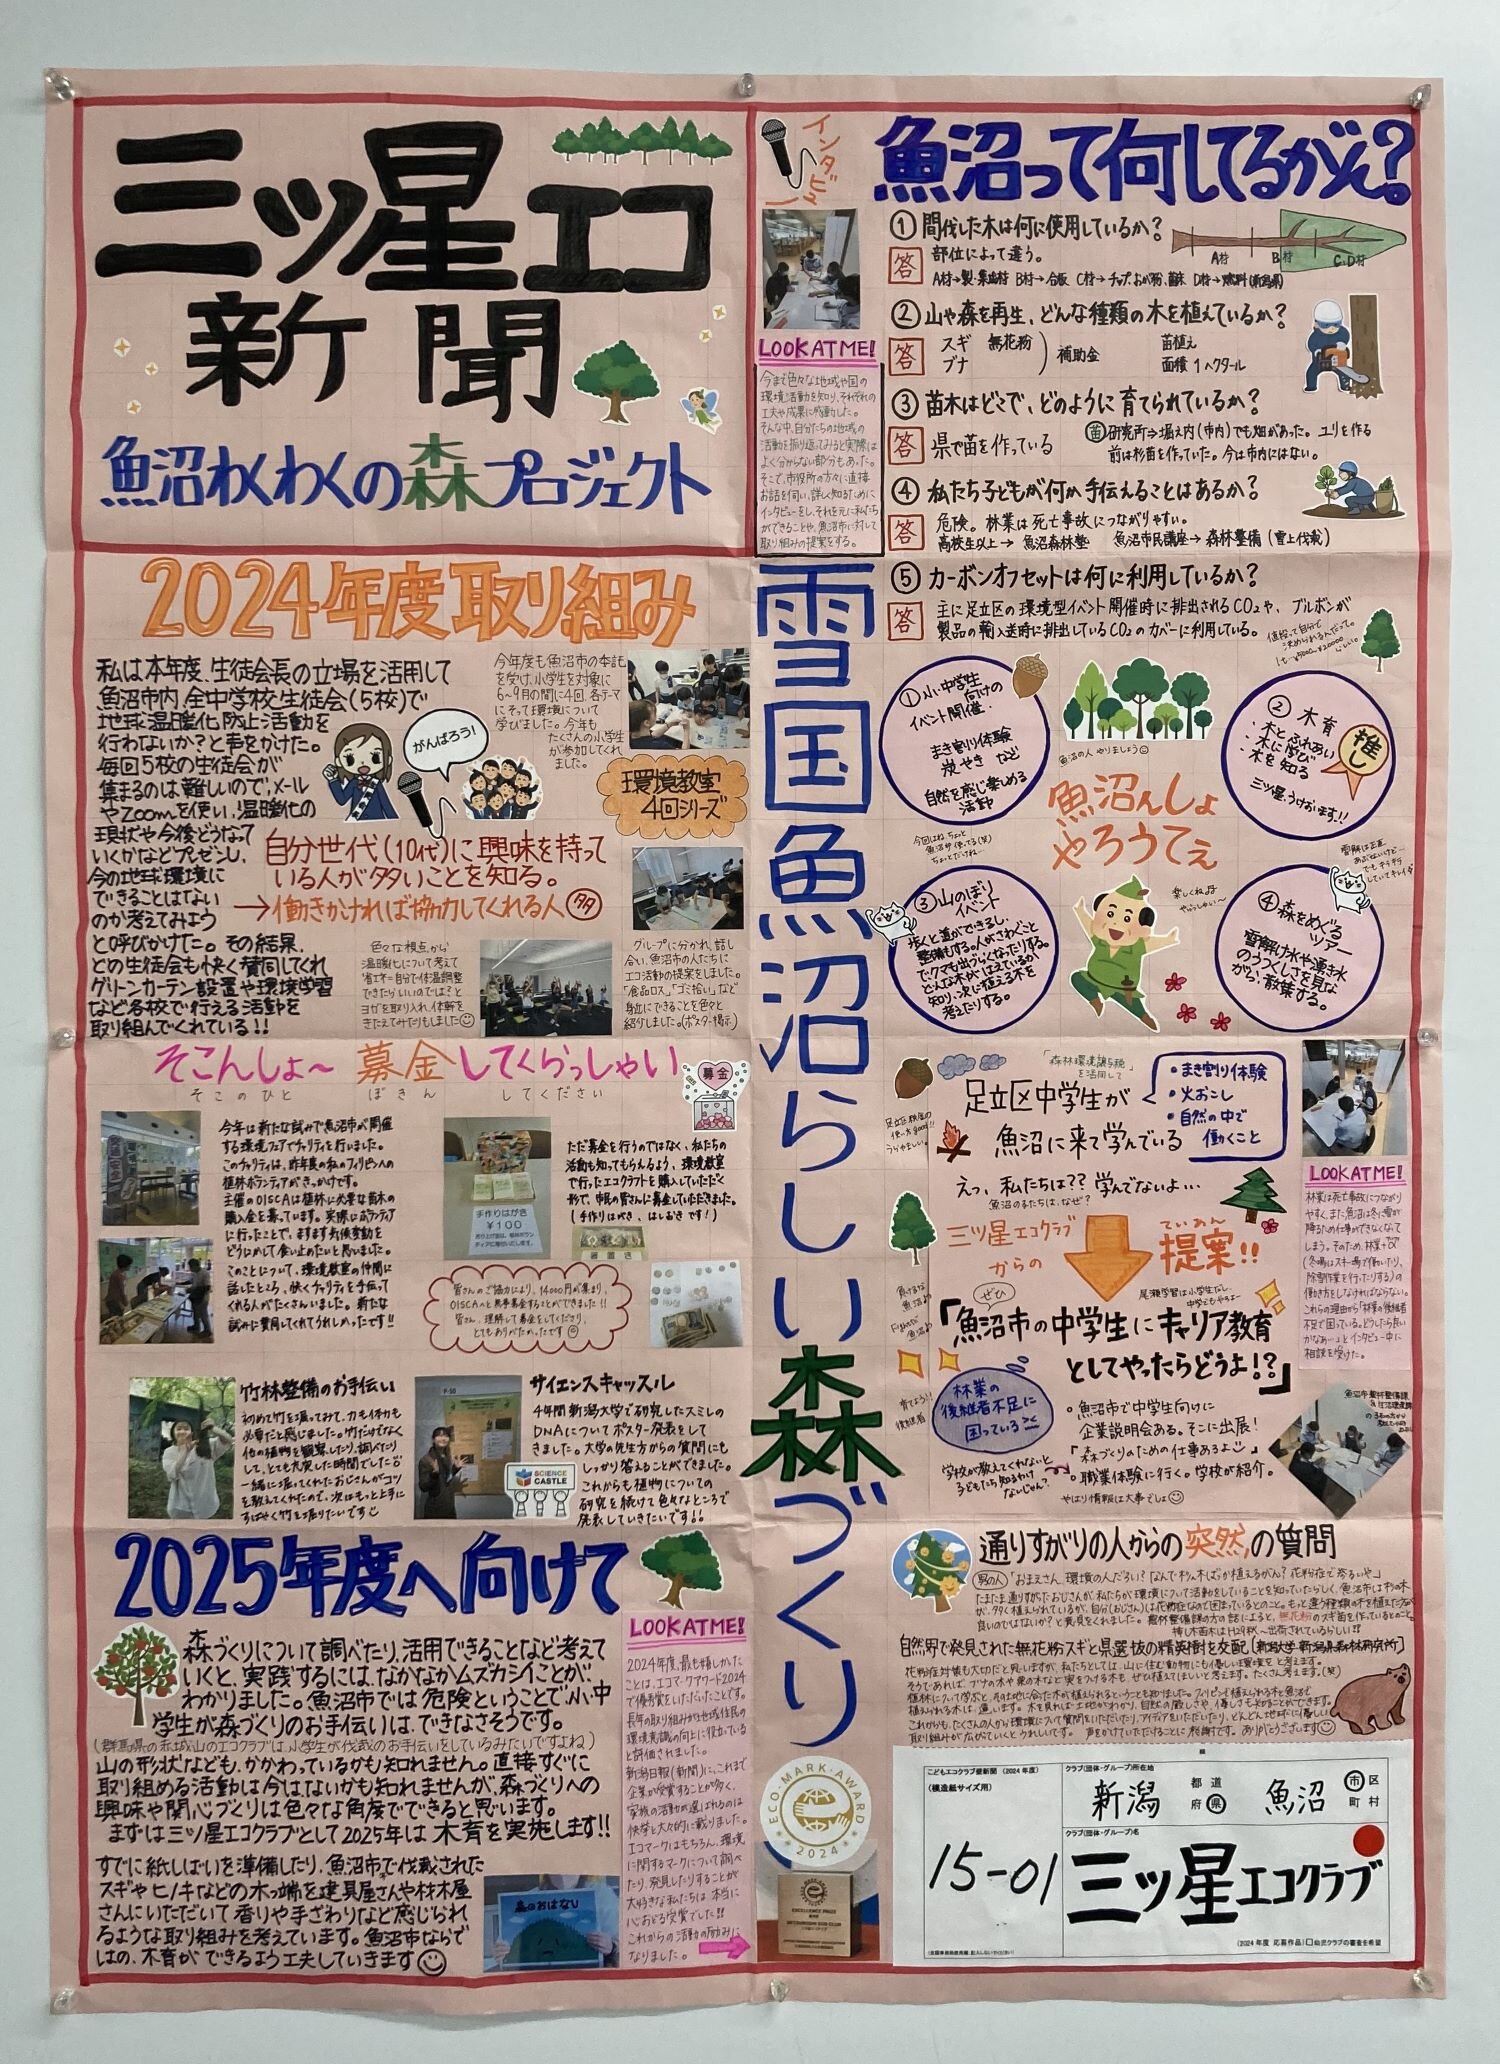 三ッ星エコ
新聞
魚沼わくわくの森プロジェクト
2024年度取り組み
私は本年度、生徒会長の立場を活用して
魚沼市内、全中学校生徒会(5校)で
地球温暖化防止活動を
行わないか?と声をかけた。
毎回5校の生徒会が
集まるのは難しいので、メール
やZoomを使い、温暖化の
現状や今後どうなって
いくかなどプレゼンし、
今の地球環境に
できることはない
のか考えてみよう
と呼びかけた。その結果、
どの生徒会も快く賛同してくれ
グリーンカーテン設置や環境学習
など各校で行える活動を
取り組んでくれている!!
がんばろう!
今年度も魚沼市の委託
を受け、小学生を対象に
6~9月の間に4回、各テーマ
にそって環境について
学びました。今年も
たくさんの小学生
が参加してくれ
ました。
環境教室
4回シリーズ
自分世代(10代)に興味を持って
いる人が多いことを知る。
→働きかければ協力してくれる人多
色々な視点から
温暖化について考えて
省エネ=自分で体温調整
できたらいいのでは?と
ヨガを取り入れ、体幹を
きたえてみたりもしました
グループに分かれ、話し
合い、魚沼市の人たちに
エコ活動の提案をしました。
「食品ロス」「ゴミ拾い」など
身近にできることを色々と
紹介しました。(ポスター掲示)
そこんしょ~募金してくらっしゃい
そこのひと ぼきん してください
募金
今年は新たな試みで魚沼市が開催
する環境フェアでチャリティを行いました。
このチャリティは、昨年度の私のフィリピンへの
植林ボランティアがきっかけです。
主催のOISCAは植林に必要な苗木の
購入金を募っています。実際にボランティア
に行ったことで、ますます気候変動を
どうにかして食い止めたいと思いました。
このことについて、環境教室の仲間に
話したところ、快くチャリティを手伝って
くれる人がたくさんいました。新たな
試みに賛同してくれてうれしかったです!!
手作りはがき
¥100
ただ募金を行うのではなく、私たちの
活動も知ってもらえるよう、環境教室
で行ったエコクラフトを購入していただく
形で、市民の皆さんに募金していただきました。
(手作りはがき、はしおきです!)
箸置き
皆さんのご協力により、14000円が集まり、
OISCAへと無事募金することができました!!
皆さん、理解して募金をしてくださり、
とてもありがたかったです
竹林整備のお手伝い
初めて竹を掘ってみて、力も体力も
必要だと感じました。竹だけでなく
他の植物を観察したり、調べたり
して、とても充実した時間でした
一緒に掘ってくれたおじさんがコツ
を教えてくれたので、次はもっと上手に
すばやく竹を掘りたいです
サイエンスキャッスル
4年間新潟大学で研究したスミレの
DNAについてポスター発表をして
きました。大学の先生方からの質問にも
しっかり答えることができました。
これからも植物についての
研究を続けて色々なところで
発表していきたいです!!
SCIENCE
CASTLE
2025年度へ向けて
森づくりについて調べたり、活用できることなど考えて
いくと、実践するには、なかなかムズカシイことが
わかりました。魚沼市では危険ということで小・中
学生が森づくりのお手伝いは、できなさそうです。
(群馬県の赤城山のエコクラブは、小学生が伐採のお手伝いをしているみたいですよね)
山の形状なども、かかわっているかも知れません。直接すぐに
取り組める活動は今はないかも知れませんが、森づくりへの
興味や関心づくりは色々な角度でできると思います。
まずは三ッ星エコクラブとして2025年は木育を実施します!!
すでに紙しばいを準備したり、魚沼市で伐載された
スギやヒノキなどの木っ端を建具屋さんや材木屋
さんにいただいて香りや手ざわりなど感じられ
るような取り組みを考えています。魚沼市ならで
はの、木育ができるよう工夫していきます
森のおはなし
LOOK AT ME!
2024年度、最も嬉しかった
ことは、エコマークアワード2024
で優秀賞をいただいたことです。
長年の取り組みが地域住民の
環境意識の向上に役立っている
と評価されました。
新潟日報(新聞)に、これまで
企業が受賞することが多く、
家族の活動が選ばれるのは
快挙と大々的に載りました。
エコマークはもちろん、環境
に関するマークについて調べ
たり、発見したりすることが
大好きな私たちは本当に
心おどる受賞でした!!
これからの活動の励みに
なりました。
ECO-MARK-AWARD
2024
EXCELLENCE PRIZE
インタビュー
LOOK AT ME!
今まで色々な地域や国の
環境活動を知り、それぞれの
工夫や成果に感動した。
そんな中、自分たちの地域の
活動を振り返ってみると実際は
よく分からない部分もあった。
そこで、市役所の方々に直接
お話を伺い、詳しく知るために
インタビューをし、それを元に私たち
ができることや、魚沼市に対して
取り組みの提案をする。
雪国魚沼らしい森づくり
魚沼って何してるがん?
①間伐した木は何に使用しているか?
答 部位によって違う。
A材→製・集成材 B材→合板 C材→チップ、おが粉、菌床 D材→燃料(新潟県)
A材 B材 C.D材
②山や森を再生、どんな種類の木を植えているか?
答 スギ 無花粉 補助金 苗植え
ブナ 面積 1ヘクタール
③苗木はどこで、どのように育てられているか?
答 県で苗を作っている
苗研究所→堀之内(市内)でも畑があった。ユリを作る
前は杉苗を作っていた。今は市内にはない。
④私たち子どもが何か手伝えることはあるか?
答 危険。林業は死亡事故につながりやすい。
高校生以上→魚沼森林塾 魚沼市民講座→森林整備(雪上伐載)
⑤カーボンオフセットは何に利用しているか?
答 主に足立区の環境型イベント開催時に排出されるCO2や、ブルボンが
製品の輸入送時に排出しているCO2のカバーに利用している。
値段って自分で
決められるんだって。
①小中学生
向けの
イベント開催
まき割り体験
炭やきなど
自然を感じ楽しめる
活動
②木育
・木とふれあい
・木に学び
・木を知る
三ッ星、うけおいます!!
推し
魚沼の人やりましょう
魚沼んしょ
やろうてぇ
今回はね、ちょっと
魚沼弁使ってる(笑)
ちょっとだけね…
③山のぼり
イベント
歩くと道ができるし、
整備もする。人がさわぐこと
でクマも出づらくなったりする。
どんな木がはえているか
知り、次に植える木を
考えたりする。
④森をめぐる
ツアー
雪解け水や湧き水
のうつくしさを見な
がら、散策する。
「森林環境譲与税」
を活用して
足立区中学生が
魚沼に来て学んでいる
・まき割り体験
・火おこし
・自然の中で
働くこと
えっ、私たちは??学んでないよ…
魚沼の子たちは、なぜ?
三ッ星エコクラブ
からの
ていあん
提案!!
尾瀬学習は小学生だし、
中学でもやろよー
ぜひ
「魚沼市の中学生にキャリア教育
としてやったらどうよ!?」
林業の
後継者不足に
困っている
育てよう!!
後継者
学校が教えてくれないと
子どもたち知るわけ
ないじゃん?
・魚沼市で中学生向けに
企業説明会ある。そこに出展!
「森づくりのための仕事あるよ」
・職業体験に行く。学校が紹介。
やはり情報は大事でしょ
LOOK AT ME!
林業は死亡事故につながり
やすく、また魚沼は冬、雪が
降るため仕事ができなくなって
しまう。そのため、林業+α
(冬場はスキー場で働いたり、
除雪作業を行ったりする)の
働き方をしなければならない。
これらの理由から「林業の後継者
不足で困っている。どうしたら良い
かなぁ…」とインタビュー中に
相談を受けた。
通りすがりの人からの突然の質問
男の人「おまえさん、環境の人だろい?なんで杉の木ばっか植えるがん?花粉症で参るいや」
たまたま通りすがったおじさんが、私たちが環境について活動をしていることを知っていたらしく、魚沼市は杉の木
が、多く植えられているが、自分(おじさん)は花粉症なので困まっているとのこと。もっと違う種類の木を植えた方が
良いのではないか?と意見をくれました。農林整備課の方の話によると、無花粉のスギ苗を作っているとのこと。
挿し木苗木はH29秋~出荷されているらしい!!
自然界で発見された無花粉スギと県選抜の精英樹を交配[新潟大学・新潟県森林研究所]
花粉症対策も大切だと思いますが、私たちとしては、山に住む動物にも優しい環境をと考えます。
そうであれば、ブナの木や栗の木など実をつける木も、ぜひ植えてほしいと考えます。たくさん考えます。(笑)
植林について学ぶと、その土地に合った木が植えられるということも知りました。フィリピンで植えられる木と魚沼で
植えられる木は、違います。木を見れば土地がわかり、自然の厳しさや優しさも知ることができます。
これからも、たくさんの人から環境について質問をいただいたり、アイディアをいただいたり、どんどん地球に優しい
取り組みが広がっていくとうれしいです。声をかけていただけることに感謝です。ありがとうございます
こどもエコクラブ壁新聞(2024年度)
(模造紙サイズ用)
クラブ(団体・グループ)所在地
新潟 都道府県 魚沼 市区町村
クラブ(団体・グループ)名
15-01
三ッ星エコクラブ
(2024年度 応募作品)□幼児クラブの審査を希望